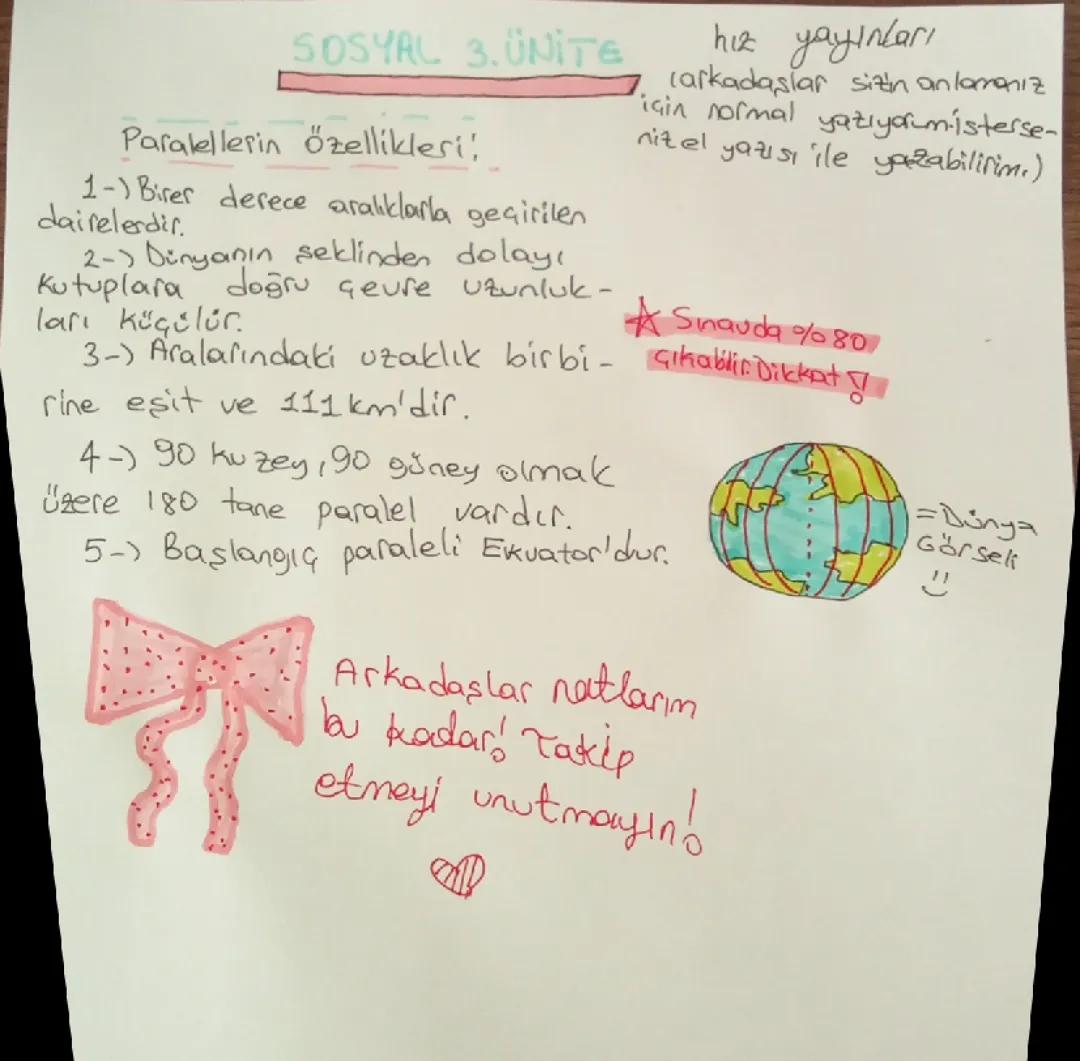 SOSYAL 3.ÜNİTE
hız yayınları
(arkadaşlar sizin anlamanız
için normal yazıyorum.isterse-
niz el yazısı ile yazabilirim.)
Paralellerin Özellikleri!
1-) Birer derece aralıklarla geçirilen
dairelerdir.
2-) Dünyanın şeklinden dolayı
Kutuplara doğru çevre uzunluk-
ları küçülür.
3-) Aralarındaki uzaklık birbi-
rine eşit ve 111 km'dir.
4-) 90 kuzey, 90 güney olmak
üzere 180 tane paralel vardır.
5-) Başlangıç paraleli Ekvator'dur.
☆ Sınavda %80
çıkabilir. Dikkat!
=Dünya
Görseli
Arkadaşlar notlarım
bu kadar! Takip
etmeyi unutmayın!